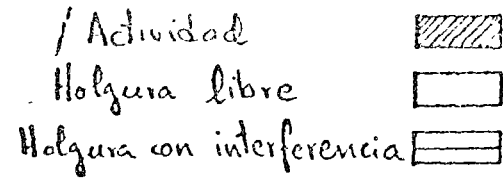 Actividad
Holgura libre
Holgura con interferencia